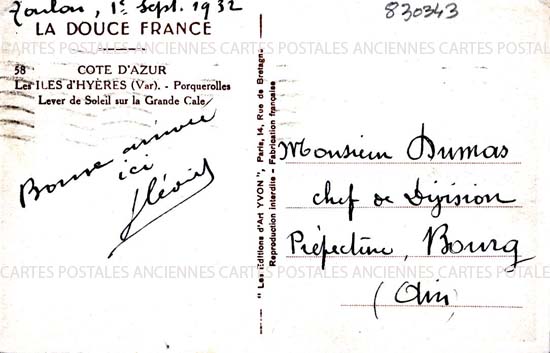 Toulon, 1er Sept. 1932
830343
LA DOUCE FRANCE
58 COTE D'AZUR
Les ILES d'HYÈRES (Var). - Porquerolles
Lever de Soleil sur la Grande Cale
Bonne arrivée
ici
" Les Éditions d'Art YVON ", Paris, 14, Rue de Bretagne
Reproduction interdite - Fabrication française
Monsieur Dumas
Chef de Division
Préfecture, Bourg
(Ain)
CARTES POSTALES ANCIENNES CARTES POSTALES ANCIENNES